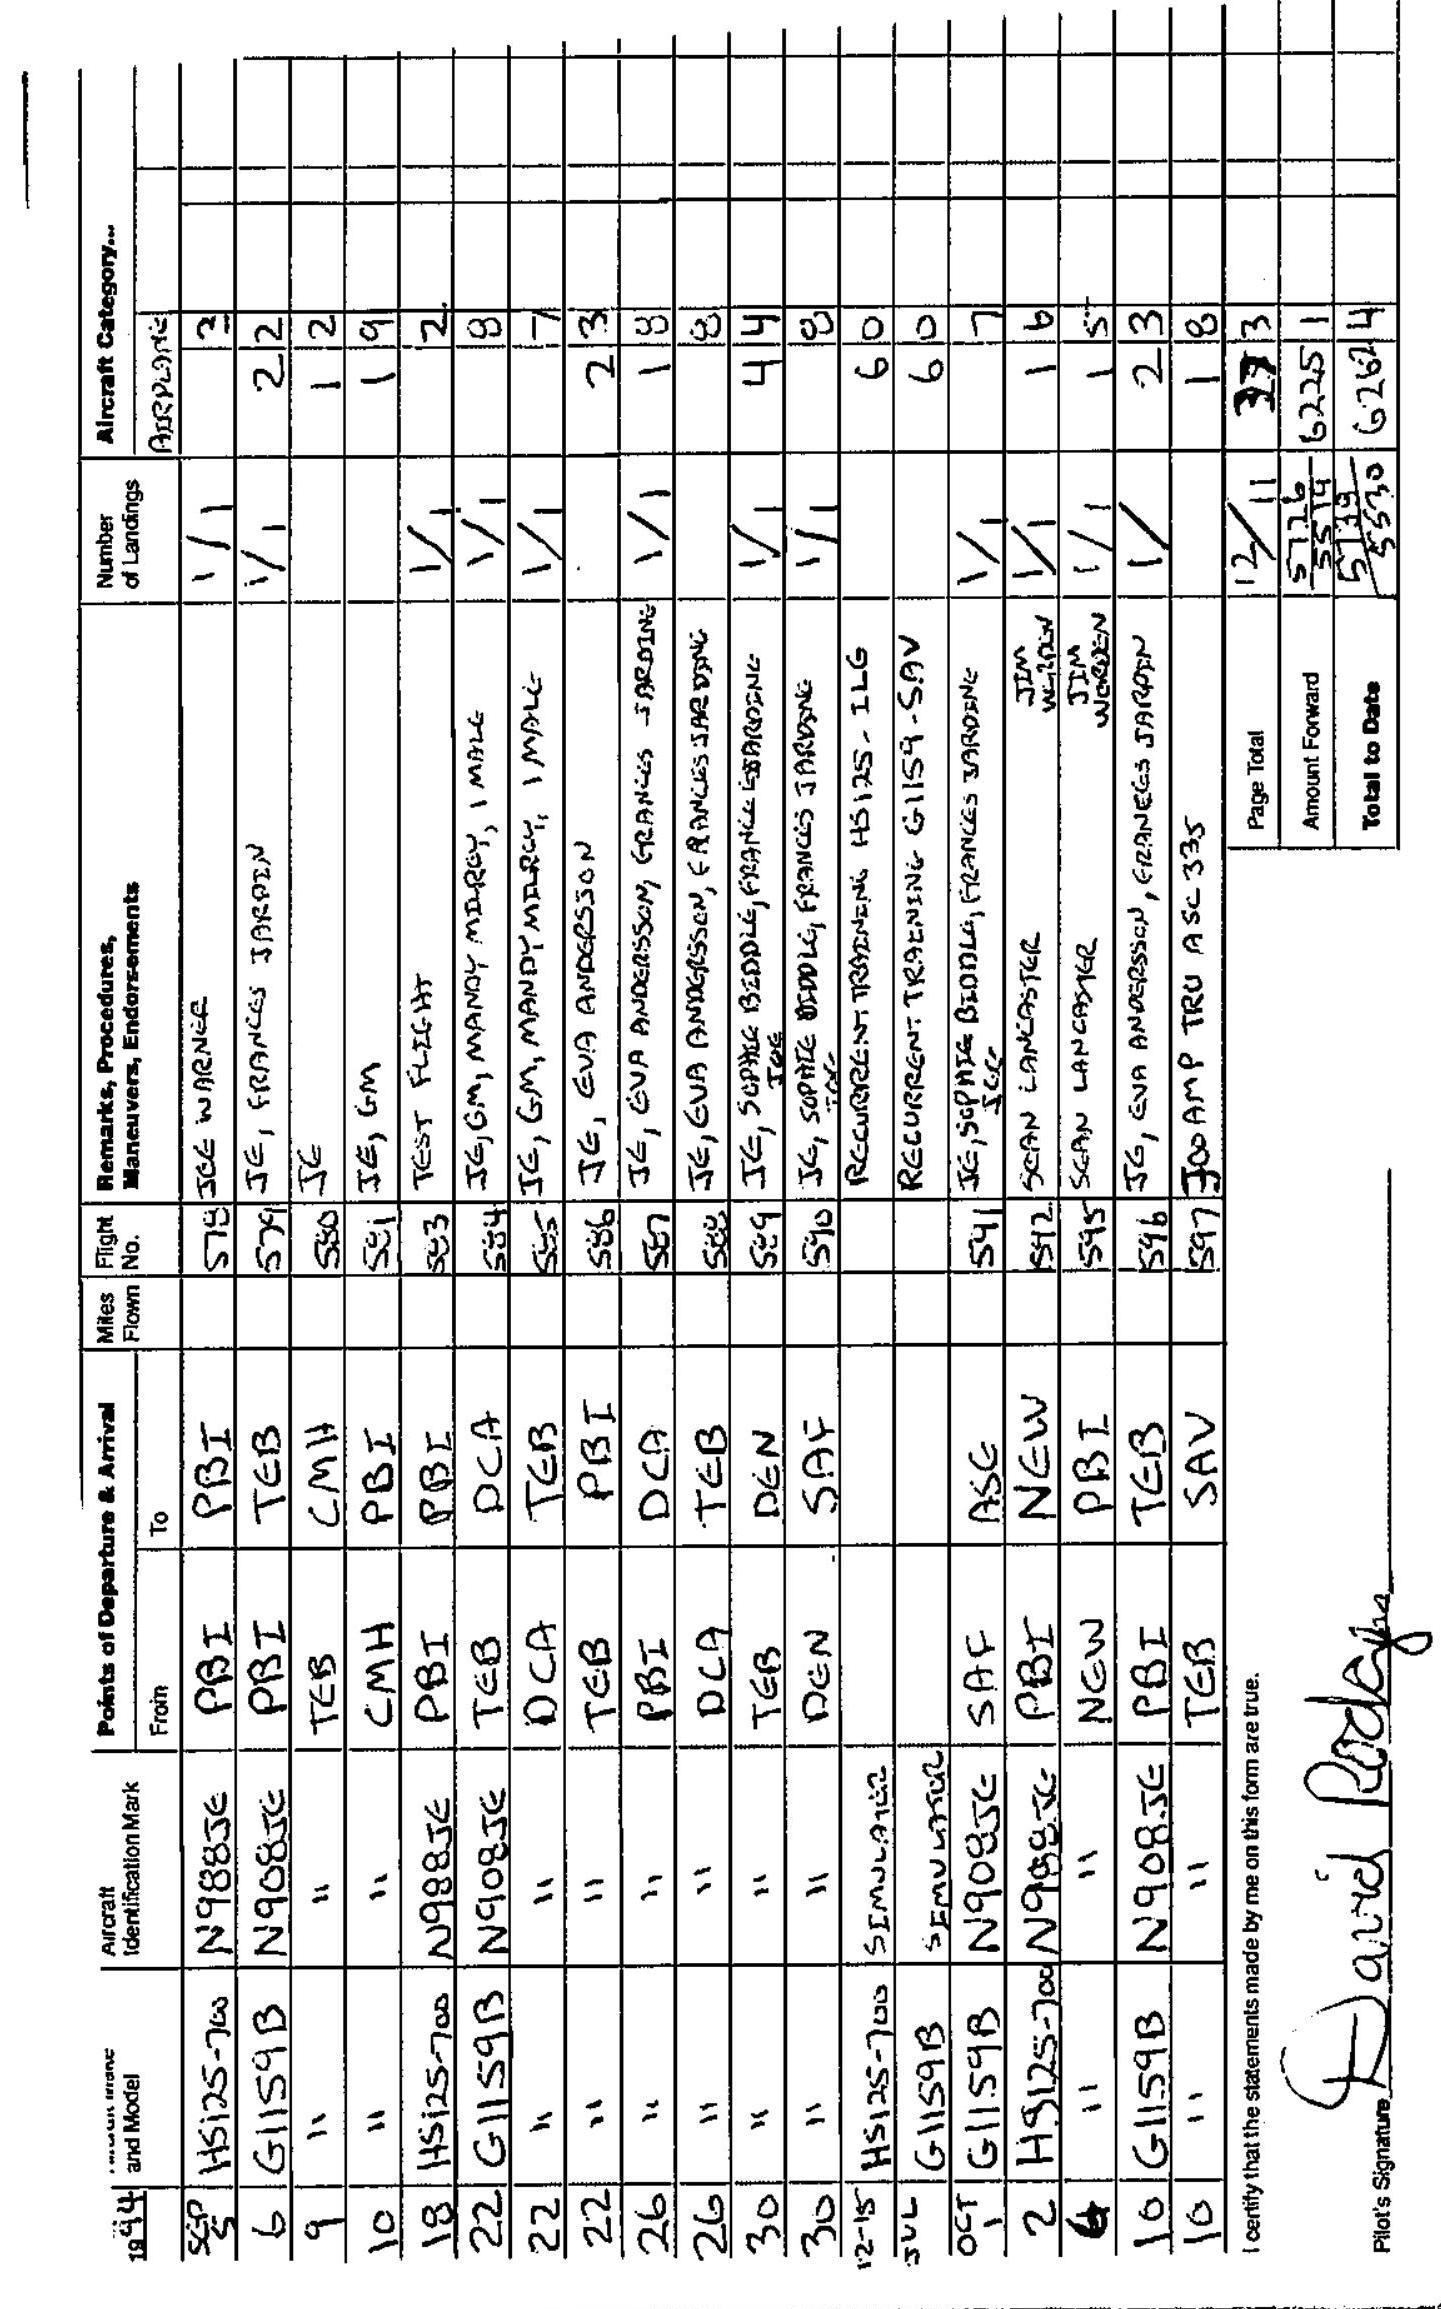 1994 and Model Aircraft Identification Mark Points of Departure & Arrival Miles Flown Flight No. Remarks, Procedures, Maneuvers, Endorsements Number of Landings Aircraft Category...
From To AIRPLANE
SEP 5 HS125-700 N988JE PBI PBI 578 JOE WARNER 1/1 2
6 G1159B N908JE PBI TEB 579 JE, FRANCES JARDIN 1/1 2 2
9 " " TEB CMH 580 JE 1 2
10 " " CMH PBI 581 JE, GM 1 9
18 HS125-700 N988JE PBI PBI 583 TEST FLIGHT 1/1 2
22 G1159B N908JE TEB DCA 584 JE, GM, MANDY MILROY, 1 MALE 1/1 8
22 " " DCA TEB 585 JE, GM, MANDY MILROY, 1 MALE 1/1 7
22 " " TEB PBI 586 JE, EVA ANDERSSON 2 3
26 " " PBI DCA 587 JE, EVA ANDERSSON, FRANCES JARDINE 1/1 1 8
26 " " DCA TEB 588 JE, EVA ANDERSSON, FRANCES JARDINE 8
30 " " TEB DEN 589 JE, SOPHIE BIDDLE, FRANCES JARDINE 1/1 4 4
JOE
30 " " DEN SAF 590 JE, SOPHIE BIDDLE, FRANCES JARDINE 1/1 8
JOE
12-15 HS125-700 SIMULATOR RECURRENT TRAINING HS125-ILG 6 0
JUL G1159B SIMULATOR RECURRENT TRAINING G1159-SAV 6 0
OCT 1 G1159B N908JE SAF ASE 591 JE, SOPHIE BIDDLE, FRANCES JARDINE 1/1 7
JOE
2 HS125-700 N988JE PBI NEW 592 SEAN LANCASTER JIM WORDEN 1/1 1 6
6 " " NEW PBI 595 SEAN LANCASTER JIM WORDEN 1/1 1 5
10 G1159B N908JE PBI TEB 596 JE, EVA ANDERSSON, FRANCES JARDIN 1/ 2 3
10 " " TEB SAV 597 300 AMP TRU ASC 335 1 8
I certify that the statements made by me on this form are true. Page Total 12/11 37 3
Amount Forward 5726/5519 6225 1
Pilot's Signature David Rodgers Total to Date 5738/5530 6262 4